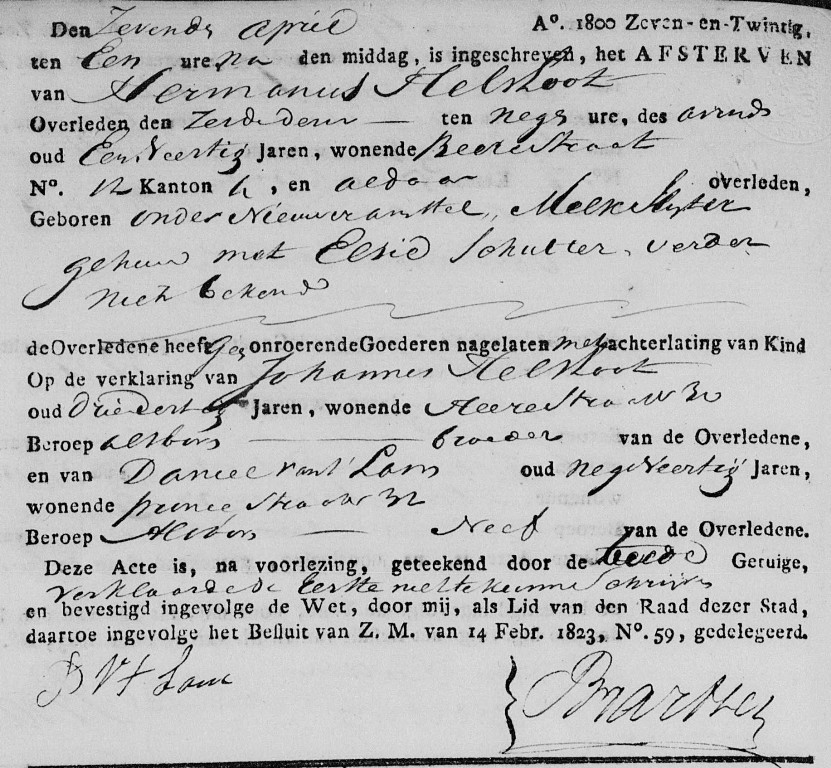 Den Zevende april A°. 1800 Zeven-en-Twintig,
ten Een ure na den middag, is ingeschreven, het AFSTERVEN
van Hermanus Helshoot
Overleden den Zesde dezer ten negen ure, des avonds
oud Een Veertig Jaren, wonende Beerestraat
N°. 12 Kanton, en aldaar overleden,
Geboren onder Nieuweramstel, Melkslyter
gehuwd met Elsie Schutter, verder
niet bekend
de Overledene heeft geen onroerende Goederen nagelaten met achterlating van Kind
Op de verklaring van Johannes Helshoot
oud Jaren, wonende N 30
Beroep als boven broeder van de Overledene,
en van Daniel van't Lam oud neg Veertig Jaren,
wonende prince straat N 32
Beroep Als boven Neef van de Overledene.
Deze Acte is, na voorlezing, geteekend door de tweede Getuige,
verklaarde de Eerste niet te kunnen Schrijven
en bevestigd ingevolge de Wet, door mij, als Lid van den Raad dezer Stad,
daartoe ingevolge het Besluit van Z. M. van 14 Febr. 1823, N°. 59, gedelegeerd.
D V t Lam